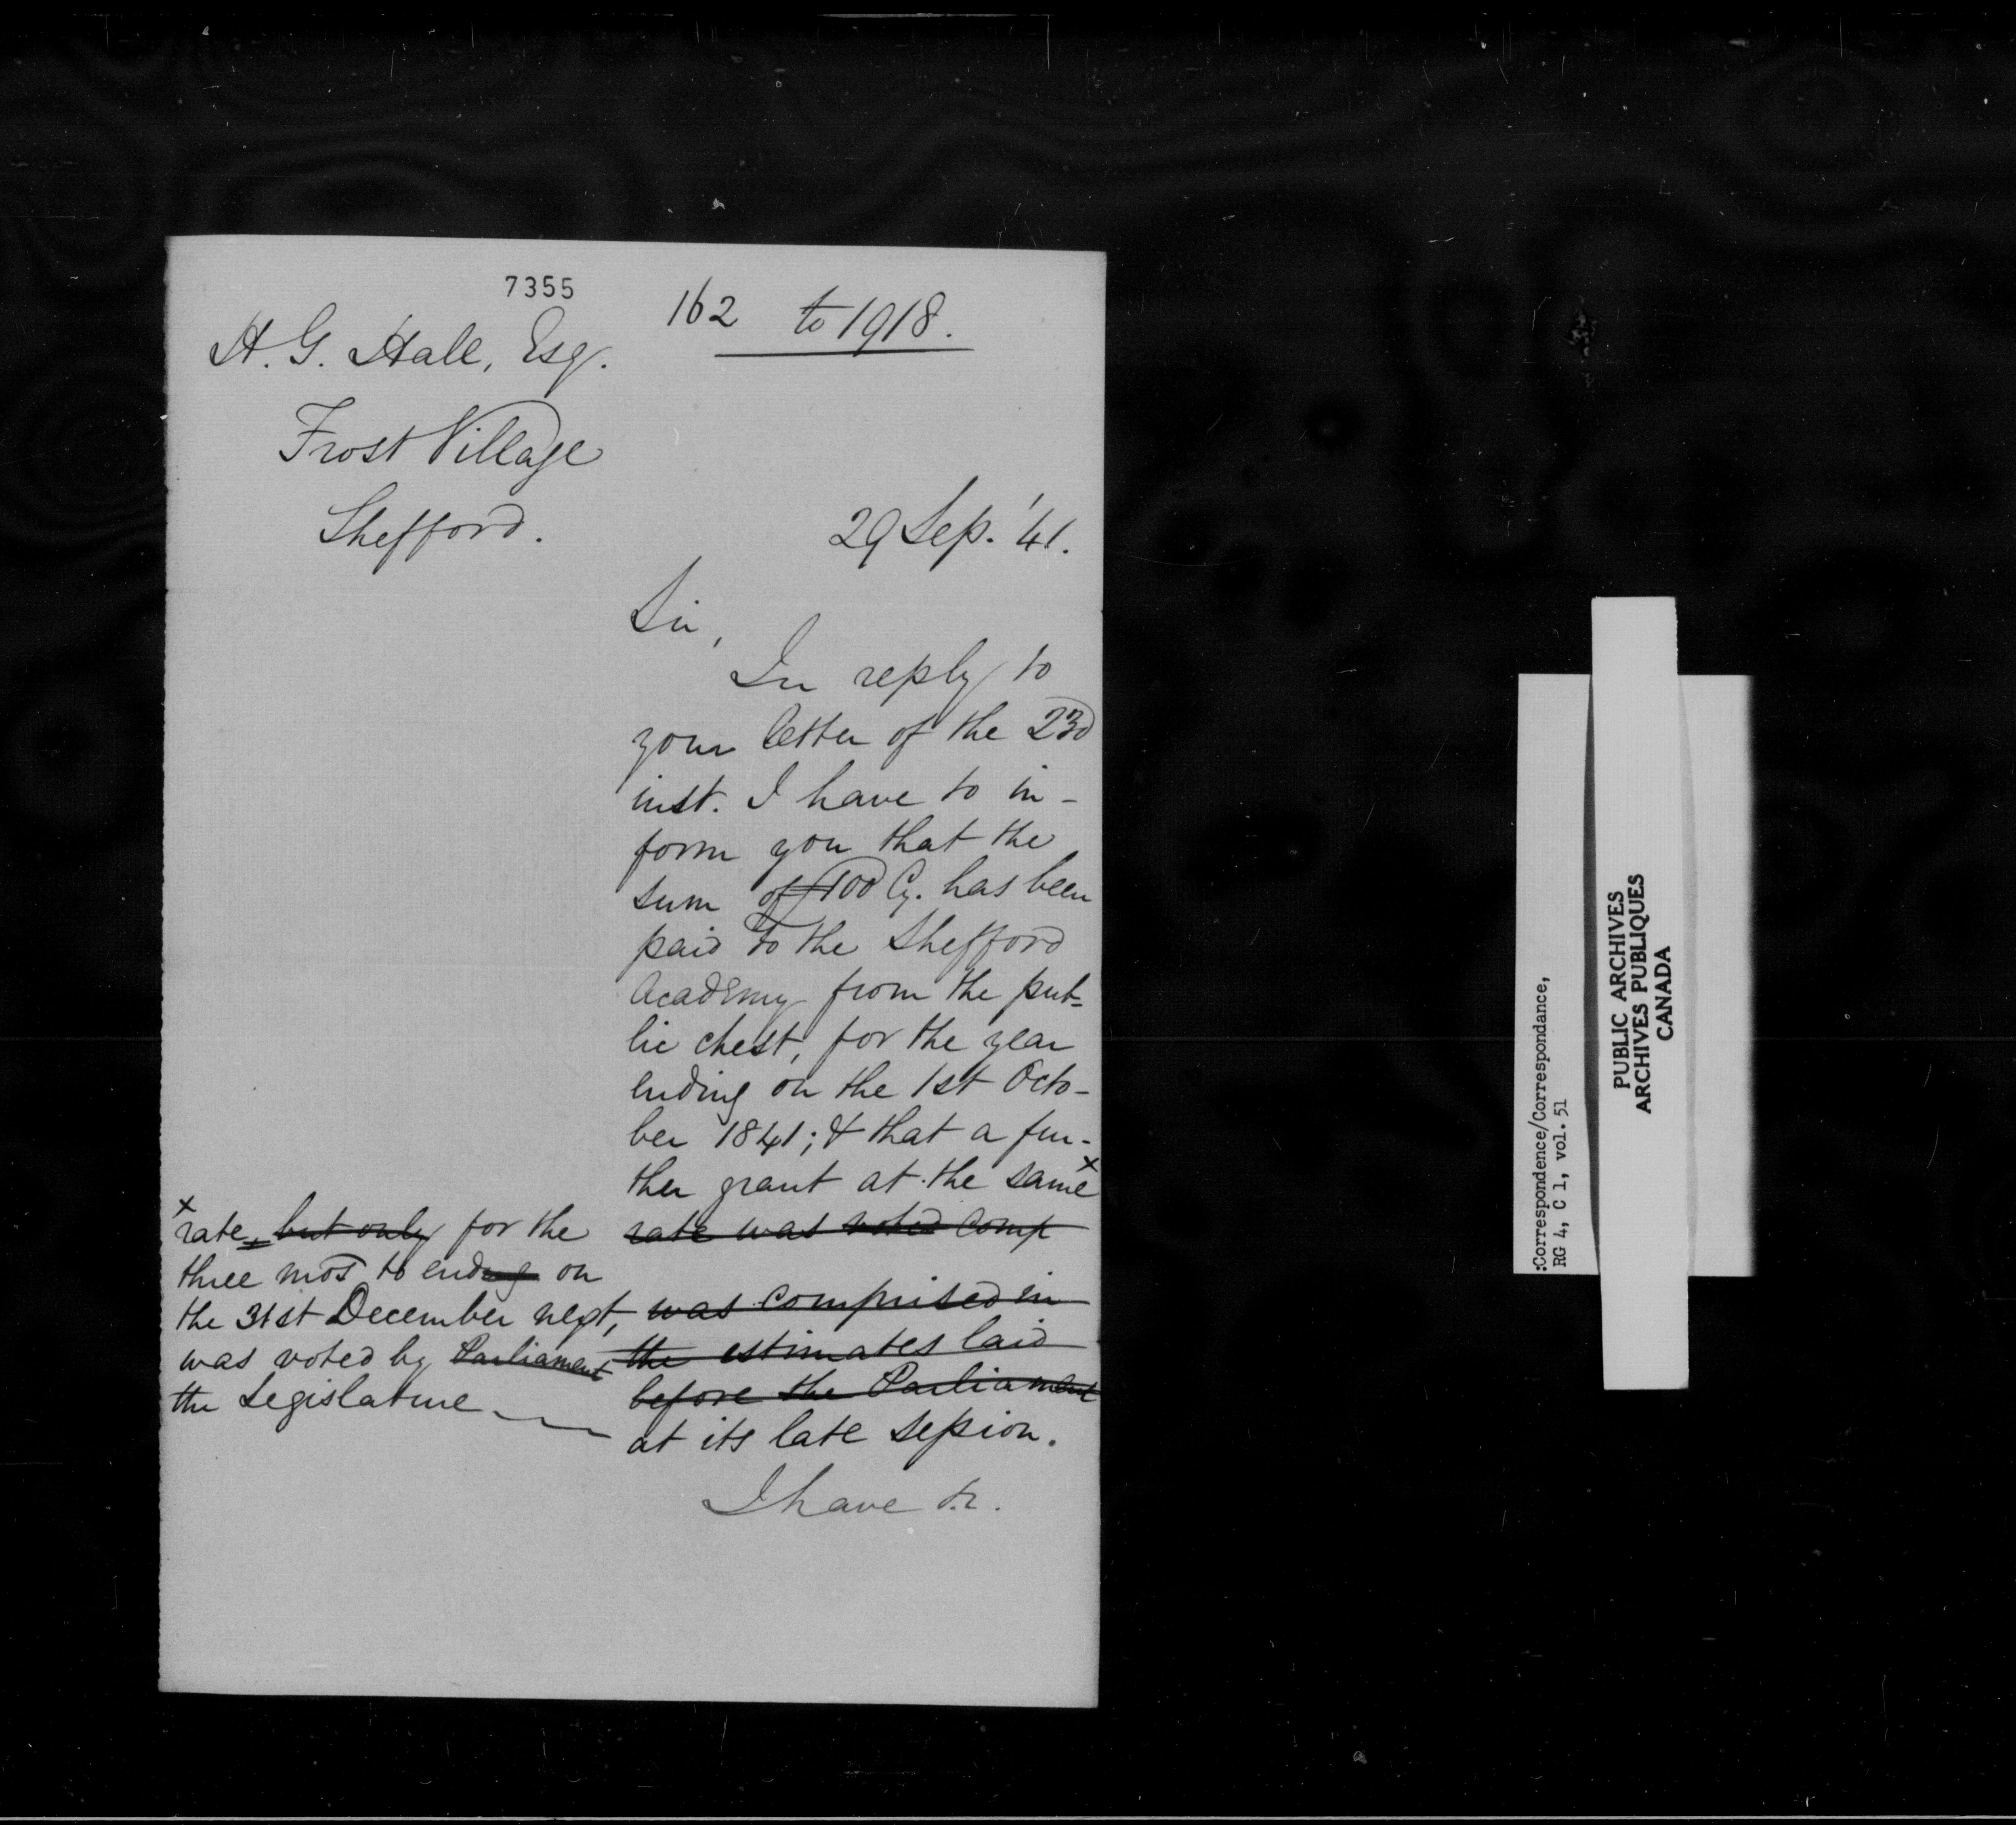 7355
162 to 1918.
H. G. Hall, Esq.
Frost Village
Shefford.
29 Sep. '41.
Sir,
In reply to
your letter of the 23d
inst. I have to in-
form you that the
sum of £100 Cy. has been
paid to the Shefford
Academy from the pub=
lic chest, for the year
ending on the 1st Octo-
ber 1841; & that a fur-
ther grant at the same x
rate was voted comp
was comprised in
the estimates laid
before the Parliament
x rate, but only for the
three mos to ending on
the 31st December next,
was voted by Parliament
the Legislature
at its late session.
I have &c.
:Correspondence/Correspondance,
RG 4, C 1, vol. 51
PUBLIC ARCHIVES
ARCHIVES PUBLIQUES
CANADA